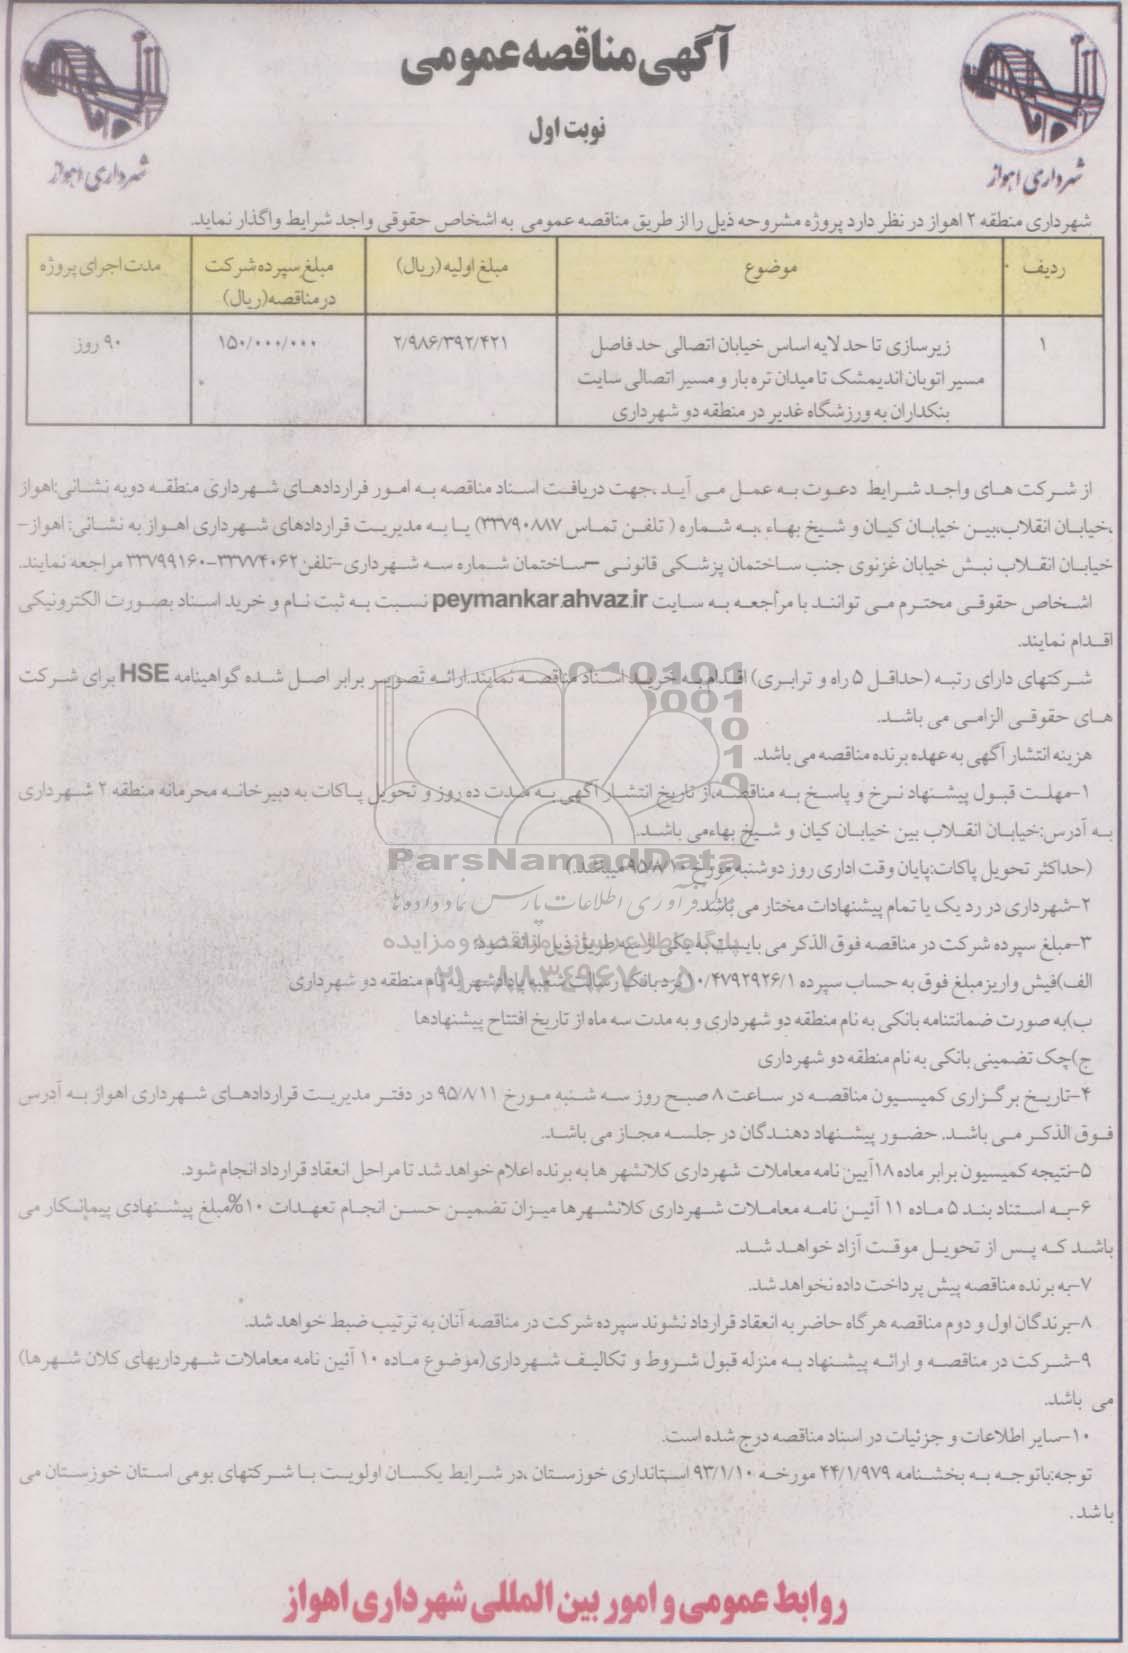 آگهی مناقصه عمومی
نوبت اول
شهرداری اهواز
شهرداری اهواز
شهرداری منطقه ۲ اهواز در نظر دارد پروژه مشروحه ذیل را از طریق مناقصه عمومی به اشخاص حقوقی واجد شرایط واگذار نماید.
ردیف موضوع مبلغ اولیه (ریال) مبلغ سپرده شرکت در مناقصه(ریال) مدت اجرای پروژه
۱ زیرسازی تا حد لایه اساس خیابان اتصالی حد فاصل ۲/۹۸۶/۳۹۲/۴۲۱ ۱۵۰/۰۰۰/۰۰۰ ۹۰ روز
مسیر اتوبان اندیمشک تا میدان تره بار و مسیر اتصالی سایت
بنکداران به ورزشگاه غدیر در منطقه دو شهرداری
از شرکت های واجد شرایط دعوت به عمل می آید ،جهت دریافت اسناد مناقصه به امور قراردادهای شهرداری منطقه دو به نشانی:اهواز
،خیابان انقلاب،بین خیابان کیان و شیخ بهاء ،به شماره ( تلفن تماس ۳۳۷۹۰۸۸۷) یا به مدیریت قراردادهای شهرداری اهواز به نشانی: اهواز-
خیابان انقلاب نبش خیابان غزنوی جنب ساختمان پزشکی قانونی -ساختمان شماره سه شهرداری-تلفن۳۳۷۷۴۰۶۲-۳۳۷۹۹۱۶۰ مراجعه نمایند.
اشخاص حقوقی محترم می توانند با مراجعه به سایت peymankar.ahvaz.ir نسبت به ثبت نام و خرید اسناد بصورت الکترونیکی
اقدام نمایند.
شرکتهای دارای رتبه (حداقل ۵ راه و ترابری) اقدام به خرید اسناد مناقصه نمایند.ارائه تصویر برابر اصل شده گواهینامه HSE برای شرکت
های حقوقی الزامی می باشد.
هزینه انتشار آگهی به عهده برنده مناقصه می باشد.
۱-مهلت قبول پیشنهاد نرخ و پاسخ به مناقصه،از تاریخ انتشار آگهی به مدت ده روز و تحویل پاکات به دبیرخانه محرمانه منطقه ۲ شهرداری
به آدرس:خیابان انقلاب بین خیابان کیان و شیخ بهاءمی باشد.
(حداکثر تحویل پاکات:پایان وقت اداری روز دوشنبه مورخ ۹۵/۸/۱۰میباشد.)
۲-شهرداری در رد یک یا تمام پیشنهادات مختار می باشد.
۳-مبلغ سپرده شرکت در مناقصه فوق الذکر می بایست به یکی از سه طریق ذیل ارائه شود:
الف)فیش واریز مبلغ فوق به حساب سپرده ۱۰/۴۷۹۲۹۲۶/۱ نزد بانک رسالت شعبه پادادشهر به نام منطقه دو شهرداری
ب)به صورت ضمانتنامه بانکی به نام منطقه دو شهرداری و به مدت سه ماه از تاریخ افتتاح پیشنهادها
ج)چک تضمینی بانکی به نام منطقه دو شهرداری
۴-تاریخ برگزاری کمیسیون مناقصه در ساعت ۸ صبح روز سه شنبه مورخ ۹۵/۸/۱۱ در دفتر مدیریت قراردادهای شهرداری اهواز به آدرس
فوق الذکر می باشد. حضور پیشنهاد دهندگان در جلسه مجاز می باشد.
۵-نتیجه کمیسیون برابر ماده ۱۸آیین نامه معاملات شهرداری کلانشهر ها به برنده اعلام خواهد شد تا مراحل انعقاد قرارداد انجام شود.
۶-به استناد بند ۵ ماده ۱۱ آئین نامه معاملات شهرداری کلانشهرها میزان تضمین حسن انجام تعهدات ۱۰%مبلغ پیشنهادی پیمانکار می
باشد که پس از تحویل موقت آزاد خواهد شد.
۷-به برنده مناقصه پیش پرداخت داده نخواهد شد.
۸-برندگان اول و دوم مناقصه هر گاه حاضر به انعقاد قرارداد نشوند سپرده شرکت در مناقصه آنان به ترتیب ضبط خواهد شد.
۹-شرکت در مناقصه و ارائه پیشنهاد به منزله قبول شروط و تکالیف شهرداری(موضوع ماده ۱۰ آئین نامه معاملات شهرداریهای کلان شهرها)
می باشد.
۱۰-سایر اطلاعات و جزئیات در اسناد مناقصه درج شده است.
توجه:باتوجه به بخشنامه ۴۴/۱/۹۷۹ مورخه ۹۳/۱/۱۰ استانداری خوزستان ،در شرایط یکسان اولویت با شرکتهای بومی استان خوزستان می
باشد .
روابط عمومی و امور بین المللی شهرداری اهواز
ParsNamadData
مرکز فرآوری اطلاعات پارس نماد داده ها
پایگاه اطلاع رسانی مناقصه و مزایده